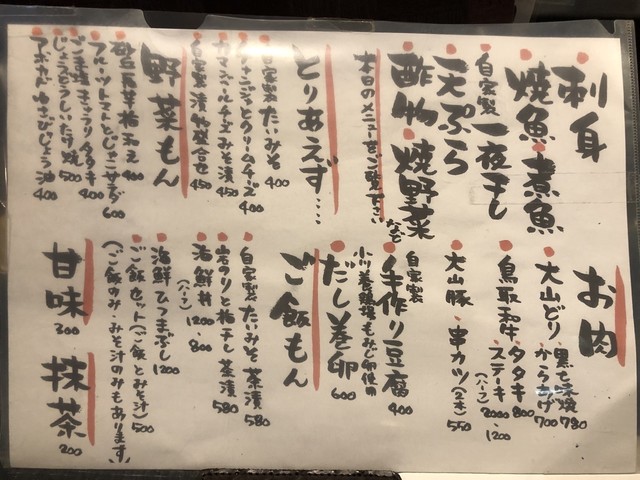 刺身
焼魚・煮魚
自家製 一夜干し
天ぷら
酢物・焼野菜 など
本日のメニューをご覧下さい
とりあえず…
自家製たいみそ 400
クリームチーズ 400
カマンベールチーズみそ漬 450
自家製漬物盛合せ 450
野菜もん
長芋梅和え 400
フルーツトマトとじゃこサラダ 600
ごま塩きゅうりタタキ 400
じょうどうしいたけ焼 500
アボカドゆずびしょう油 400
お肉
大山どり 黒七味焼 780
からあげ 700
鳥取和牛 タタキ 800
ステーキ 2000
(ハーフ) 1200
大山豚 串カツ(2本) 550
自家製
手作り豆腐 400
小川養鶏場もみじ卵使用
だし巻卵 600
ご飯もん
自家製たいみそ茶漬 580
岩のりと梅干し茶漬 580
海鮮丼 1200
(ハーフ) 800
海鮮ひつまぶし 1200
ご飯セット(ご飯とみそ汁) 500
(ご飯のみ・みそ汁のみもあります)
甘味 300
抹茶 200